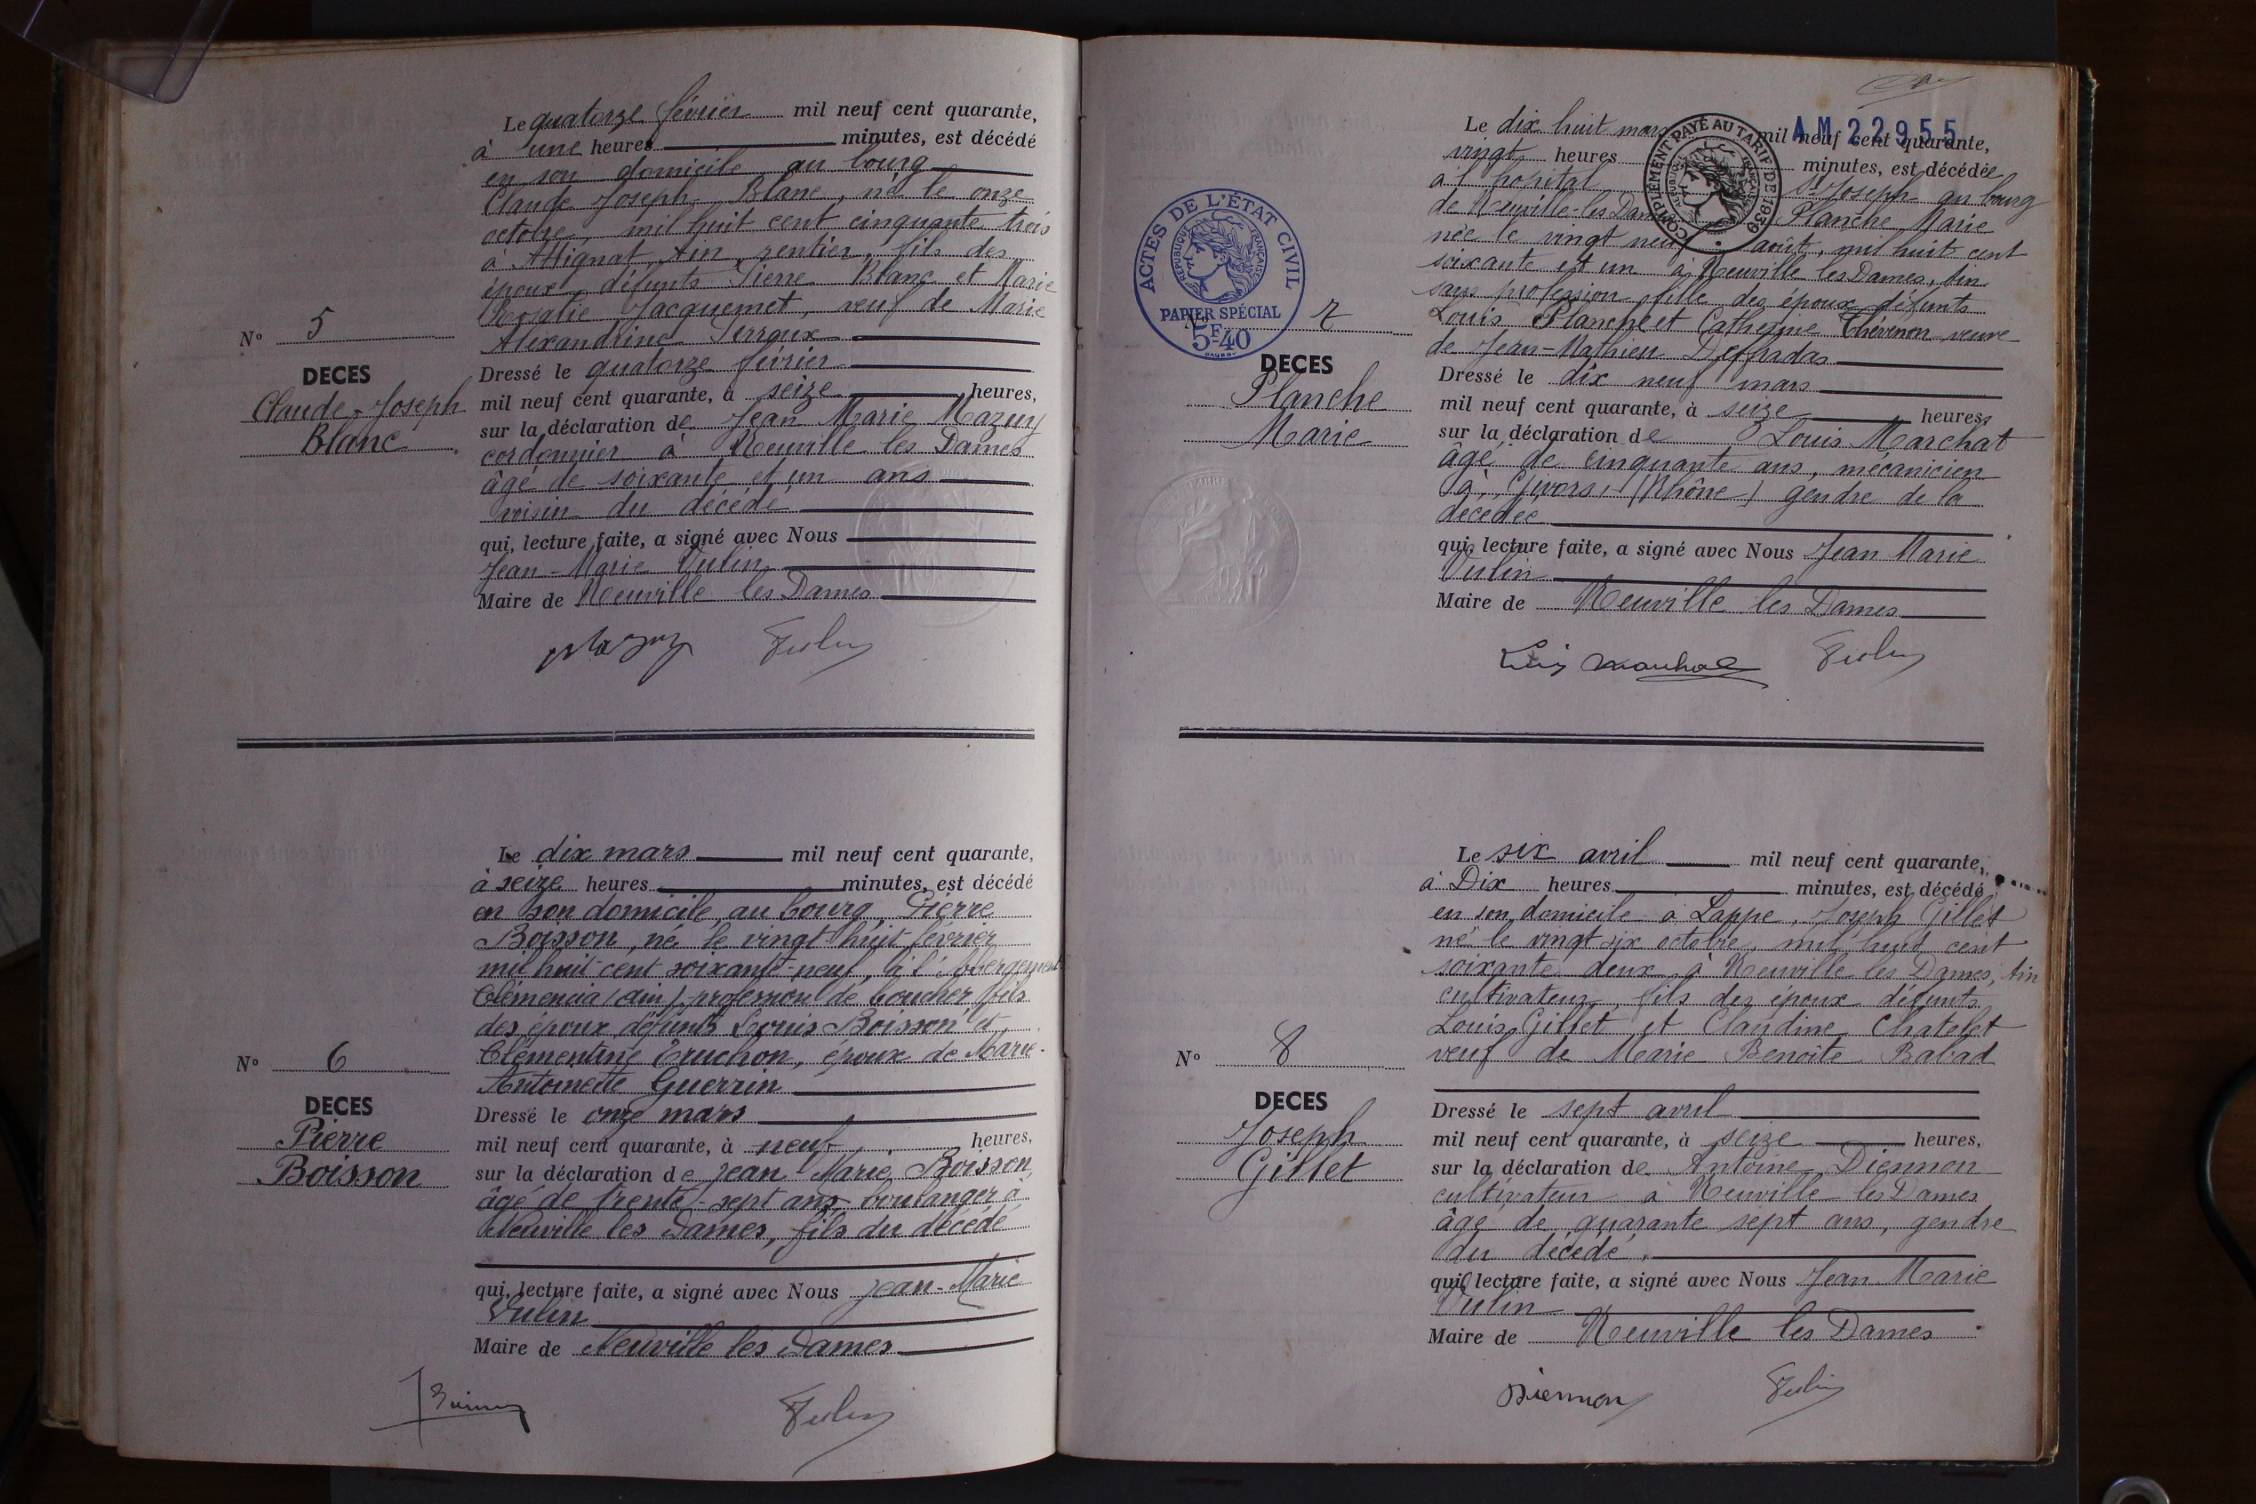 Le quatorze février mil neuf cent quarante,
à une heures minutes, est décédé
en son domicile au bourg
Claude Joseph Blanc, né le onze
octobre mil huit cent cinquante trois
à Attignat, Ain, rentier, fils des
époux défunts Pierre Blanc et Marie
Rosalie Jacquemet, veuf de Marie
Alexandrine Terraux
N° 5
DECES
Claude-Joseph
Blanc
Dressé le quatorze février
mil neuf cent quarante, à seize heures,
sur la déclaration de Jean Marie Mazuy
cordonnier à Neuville les Dames
âgé de soixante et un ans
voisin du décédé
qui, lecture faite, a signé avec Nous
Jean-Marie Vulin
Maire de Neuville les Dames
Mazuy Vulin
Le dix mars mil neuf cent quarante,
à seize heures minutes, est décédé
en son domicile, au bourg, Pierre
Boisson, né le vingt huit février
mil huit cent soixante-neuf, à l'Abergement
Clémencia (Ain), profession de boucher, fils
des époux défunts Louis Boisson et
Clémentine Truchon, époux de Marie-
Antoinette Guerrin
N° 6
DECES
Pierre
Boisson
Dressé le onze mars
mil neuf cent quarante, à neuf heures,
sur la déclaration de Jean Marie Boisson,
âgé de trente-sept ans, boulanger à
Neuville les Dames, fils du décédé
qui, lecture faite, a signé avec Nous Jean-Marie
Vulin
Maire de Neuville les Dames
Vulin
AM 22955
Le dix huit mars mil neuf cent quarante,
vingt heures minutes, est décédée
à l'hôpital St Joseph au bourg
de Neuville-les-Dames Planche Marie
née le vingt neuf août, mil huit cent
soixante et un à Neuville les Dames, Ain
sans profession, fille des époux défunts
Louis Planche et Catherine Thévenon veuve
de Jean-Mathieu Deffradas
COMPLÉMENT PAYÉ AU TARIF DE 1939
RÉPUBLIQUE FRANÇAISE
ACTES DE L'ÉTAT CIVIL
RÉPUBLIQUE FRANÇAISE
PAPIER SPÉCIAL
5F40
N° 7
DECES
Planche
Marie
Dressé le dix neuf mars
mil neuf cent quarante, à seize heures,
sur la déclaration de Louis Marchat
âgé de cinquante ans, mécanicien
à Givors, (Rhône) gendre de la
décédée
qui, lecture faite, a signé avec Nous Jean Marie
Vulin
Maire de Neuville les Dames
Vulin
Le six avril mil neuf cent quarante,
à Dix heures minutes, est décédé
en son domicile à Lappe, Joseph Gillet
né le vingt six octobre, mil huit cent
soixante deux à Neuville les Dames, Ain
cultivateur, fils des époux défunts
Louis Gillet et Claudine Chatelet
veuf de Marie Benoîte Rabad
N° 8
DECES
Joseph
Gillet
Dressé le sept avril
mil neuf cent quarante, à seize heures,
sur la déclaration de Antoine Diennon
cultivateur à Neuville les Dames
âgé de quarante sept ans, gendre
du décédé.
qui, lecture faite, a signé avec Nous Jean Marie
Vulin
Maire de Neuville les Dames
Diennon Vulin